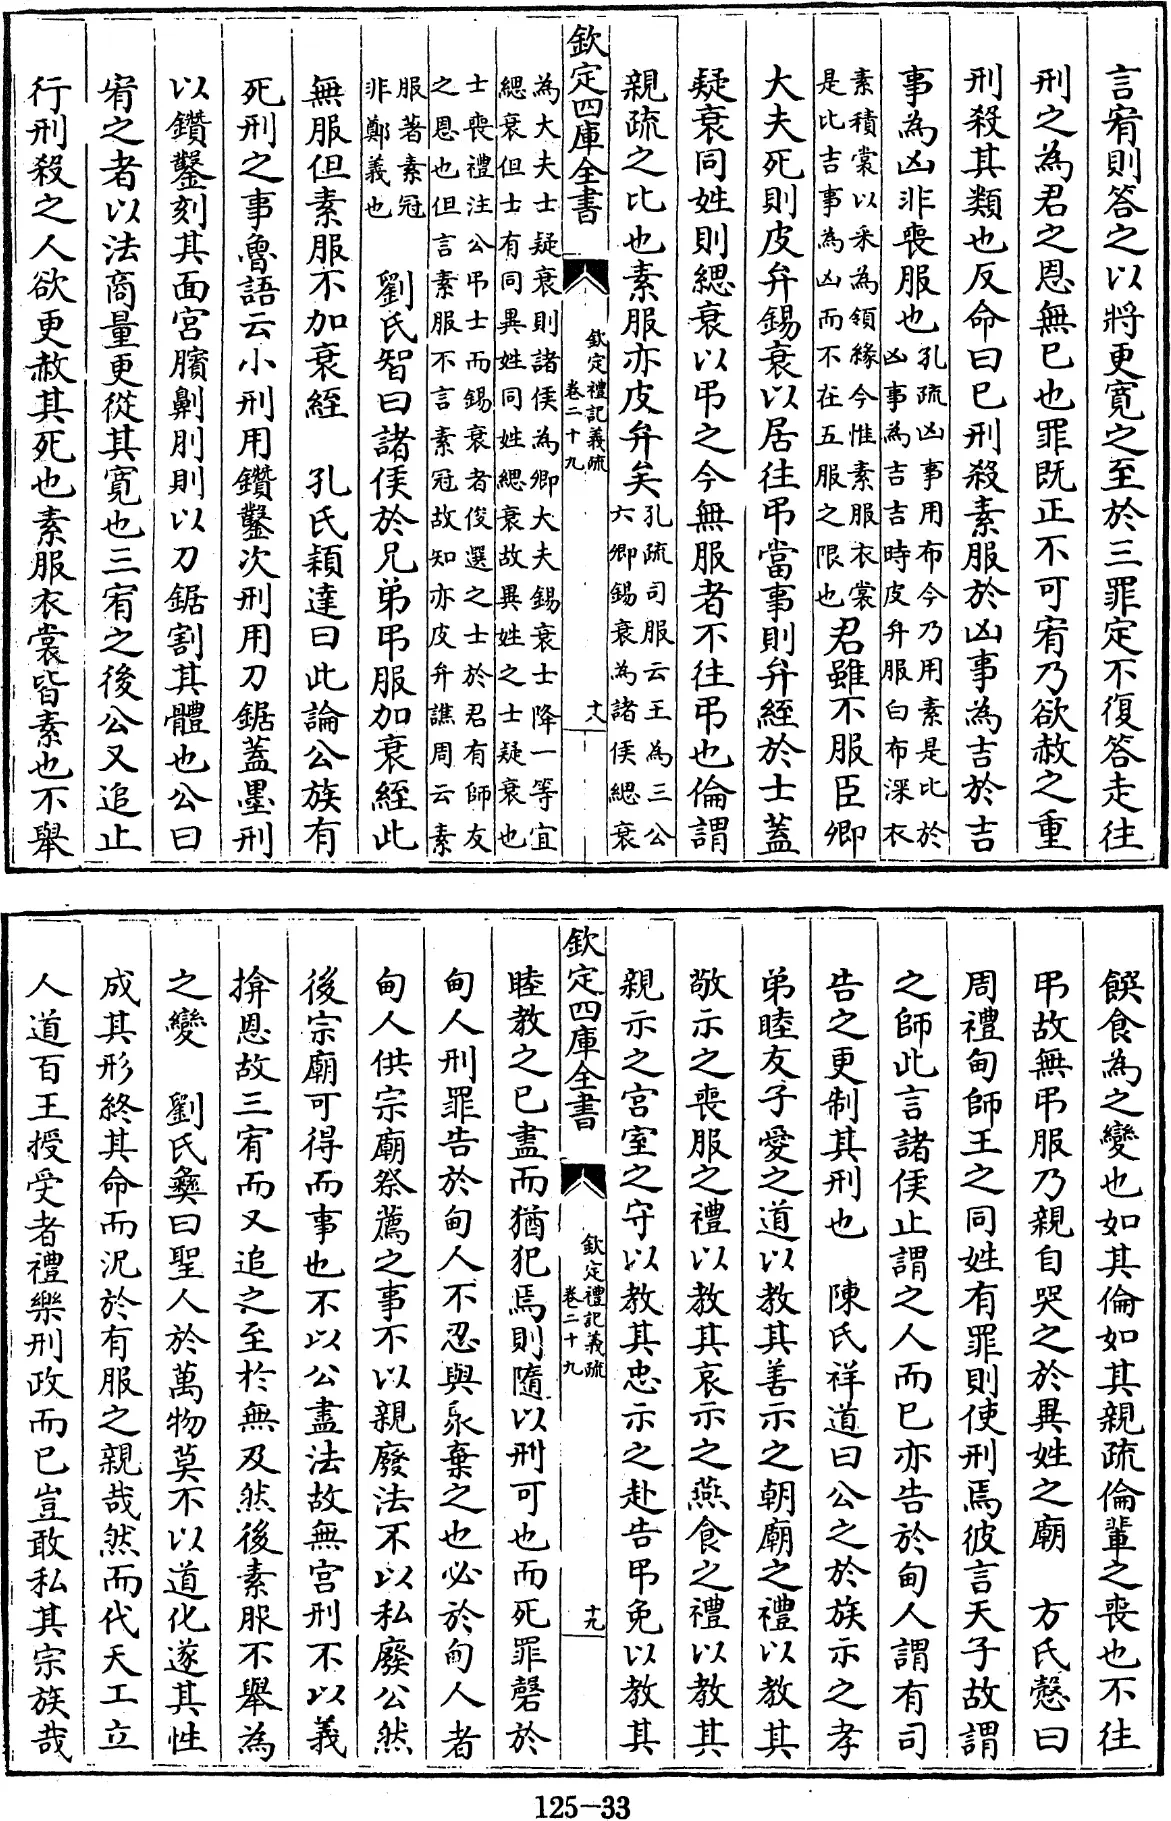 言宥則答之以將更寛之至於三罪定不復答走往
刑之為君之恩無已也罪既正不可宥乃欲赦之重
刑殺其類也反命曰已刑殺素服於凶事為吉於吉
事為凶非喪服也孔疏凶事用布今乃用素是比於
凶事為吉吉時皮弁服白布深衣
素積裳以采為領緣今惟素服衣裳
是比吉事為凶而不在五服之限也君雖不服臣卿
大夫死則皮弁錫衰以居往弔當事則弁絰於士蓋
疑衰同姓則緦衰以弔之今無服者不往弔也倫謂
親疏之比也素服亦皮弁矣孔疏司服云王為三公
六卿錫衰為諸侯緦衰
欽定四庫全書
欽定禮記義疏
卷二十九
十八
為大夫士疑衰則諸侯為卿大夫錫衰士降一等宜
緦衰但士有同異姓同姓緦衰故異姓之士疑衰也
士喪禮注公弔士而錫衰者俊選之士於君有師友
之恩也但言素服不言素冠故知亦皮弁譙周云素
服著素冠
非鄭義也　劉氏智曰諸侯於兄弟弔服加衰絰此
無服但素服不加衰絰　孔氏穎達曰此論公族有
死刑之事魯語云小刑用鑽鑿次刑用刀鋸蓋墨刑
以鑽鑿刻其面宮臏劓刖則以刀鋸割其體也公曰
宥之者以法商量更從其寛也三宥之後公又追止
行刑殺之人欲更赦其死也素服衣裳皆素也不舉
饌食為之變也如其倫如其親疏倫輩之喪也不往
弔故無弔服乃親自哭之於異姓之廟　方氏慤曰
周禮甸師王之同姓有罪則使刑焉彼言天子故謂
之師此言諸侯止謂之人而已亦告於甸人謂有司
告之更制其刑也　陳氏祥道曰公之於族示之孝
弟睦友子愛之道以教其善示之朝廟之禮以教其
敬示之喪服之禮以教其哀示之燕食之禮以教其
親示之宮室之守以教其忠示之赴告弔免以教其
欽定四庫全書
欽定禮記義疏
卷二十九
十九
睦教之已盡而猶犯焉則隨以刑可也而死罪磬於
甸人刑罪告於甸人不忍與衆棄之也必於甸人者
甸人供宗廟祭薦之事不以親廢法不以私廢公然
後宗廟可得而事也不以公盡法故無宮刑不以義
揜恩故三宥而又追之至於無及然後素服不舉為
之變　劉氏彝曰聖人於萬物莫不以道化遂其性
成其形終其命而況於有服之親哉然而代天工立
人道百王授受者禮樂刑政而已豈敢私其宗族哉
125-33